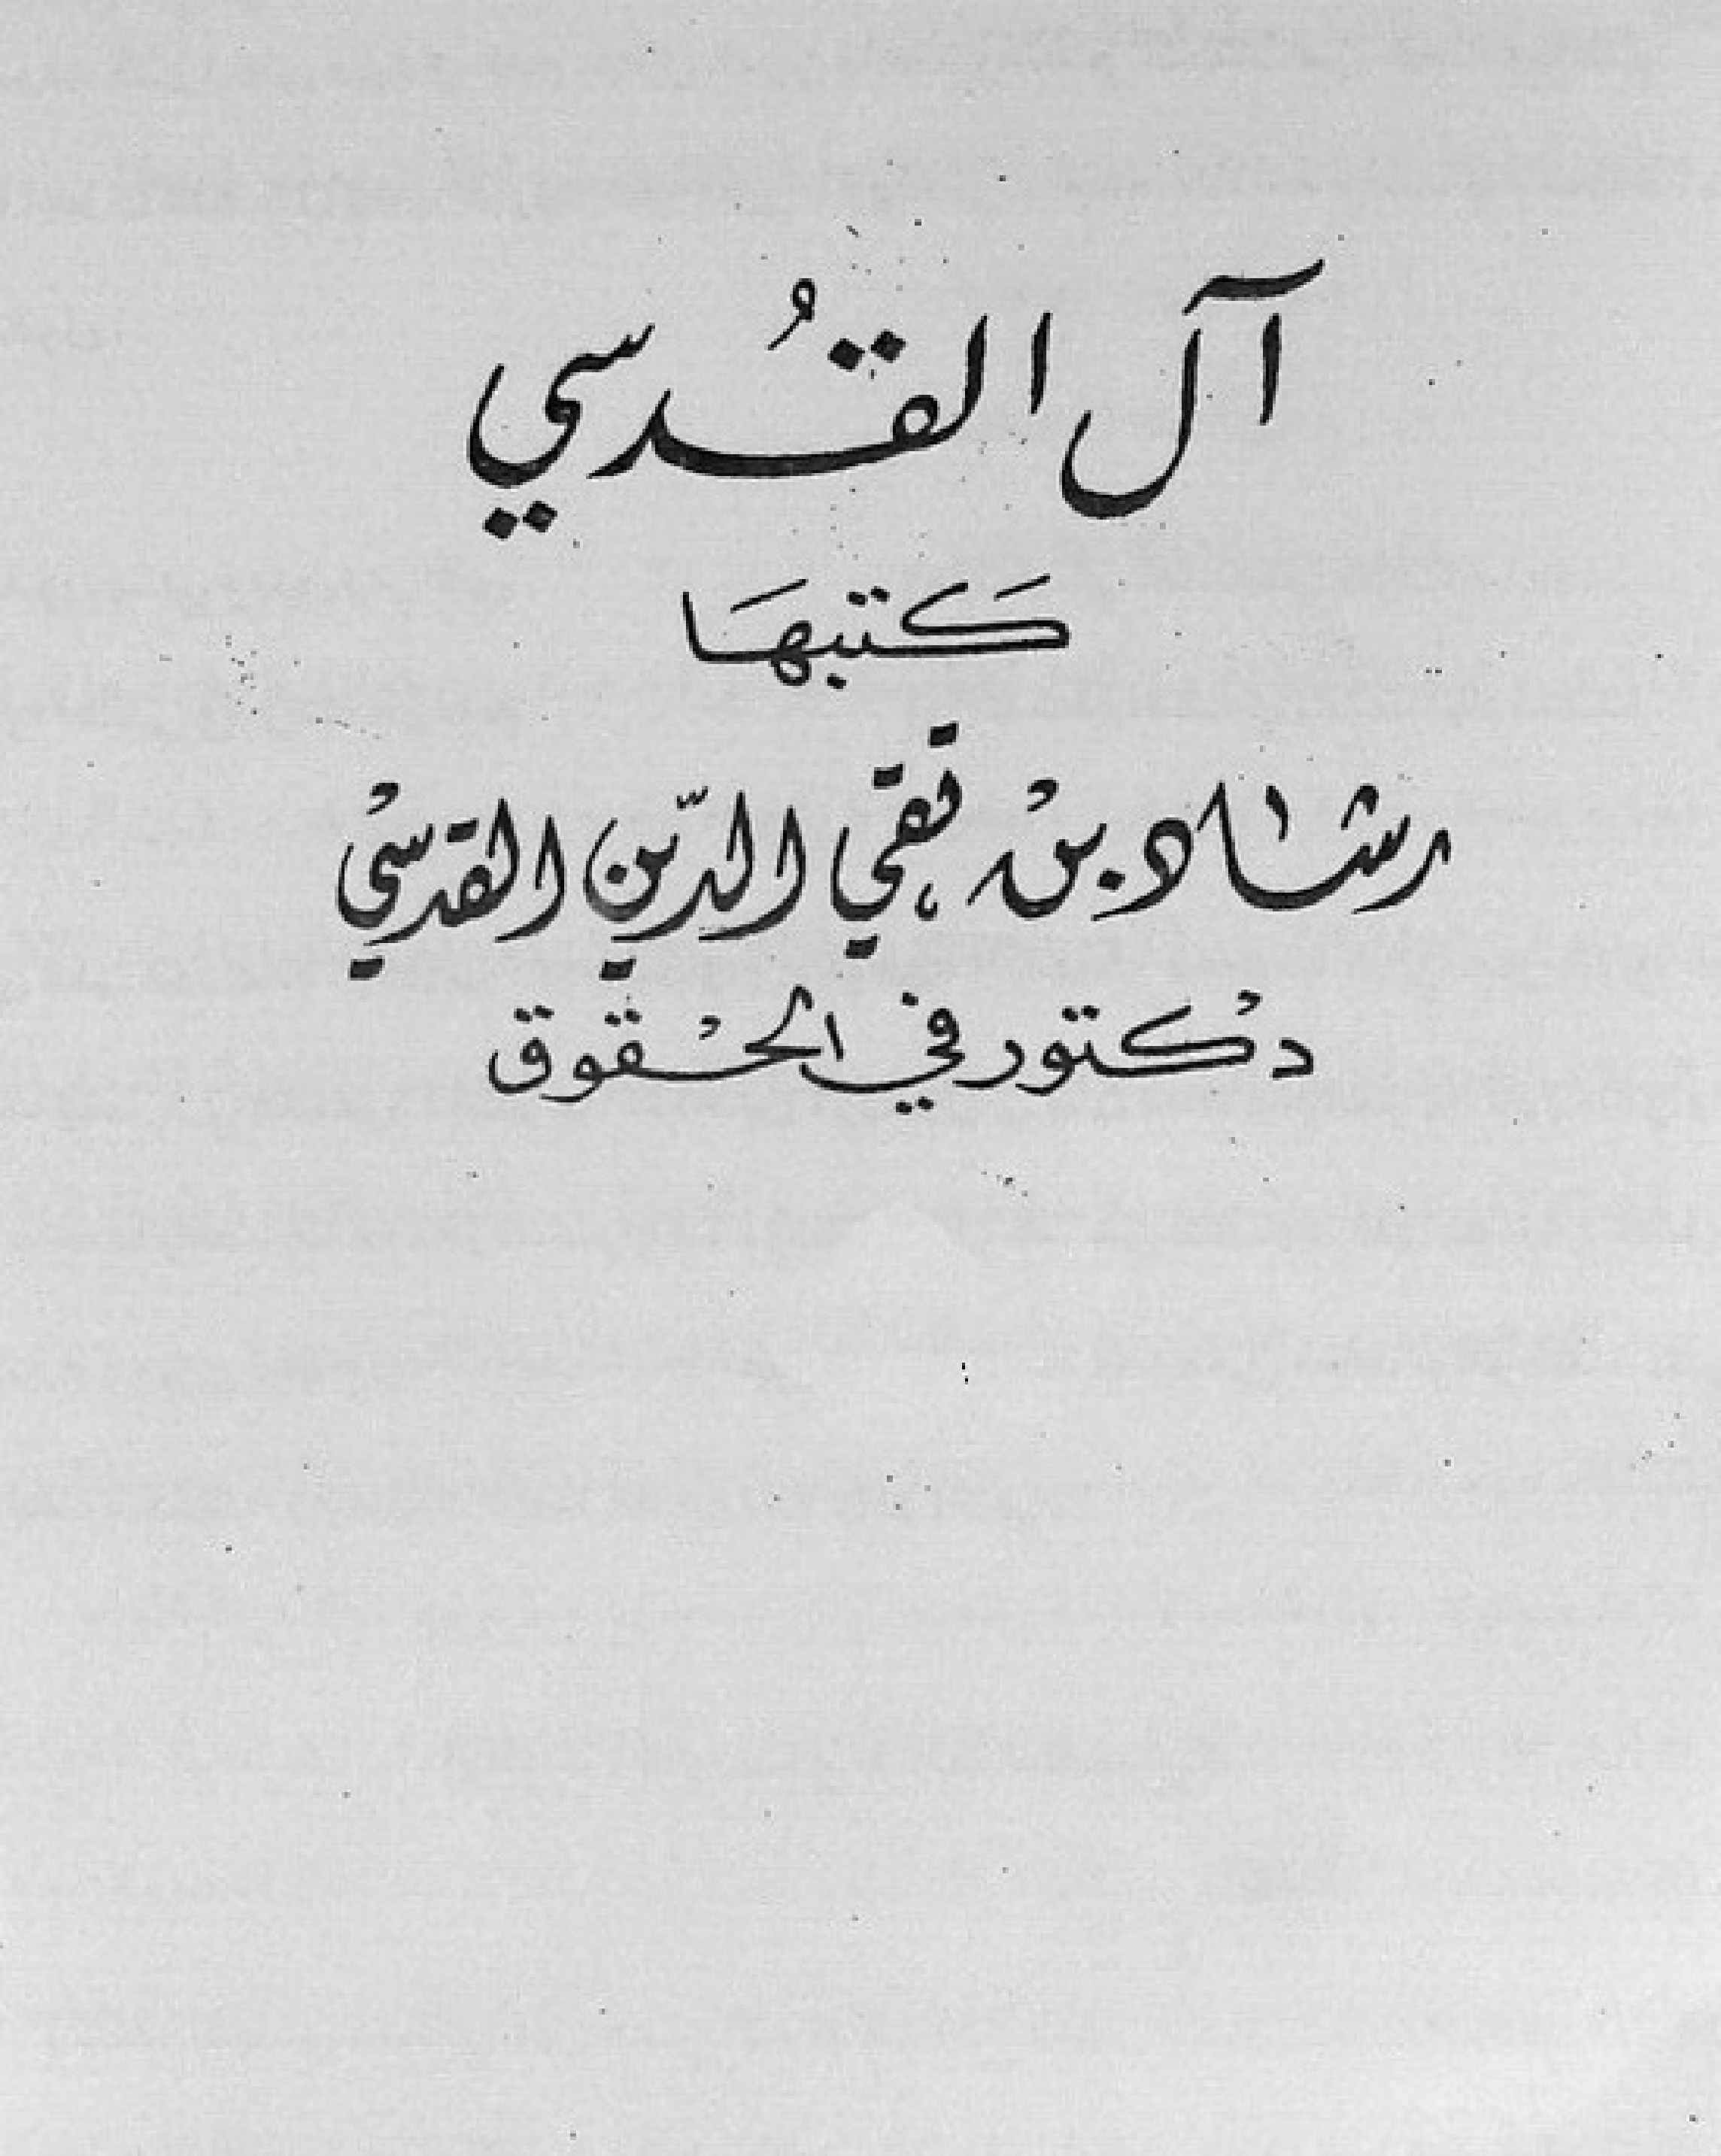 آل القُدسي
كَتبهَا
رشاد بن تقي الدّين القدسي
دكتور في الحقوق